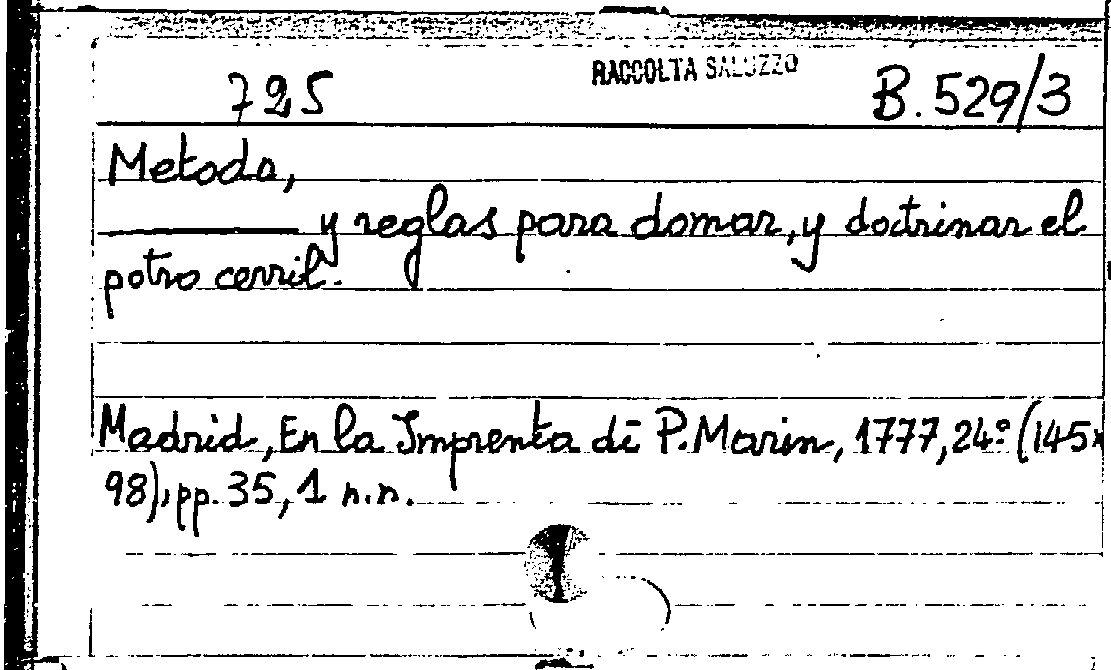 725 RACCOLTA SALUZZO B.529/3
Metodo,
y reglas para domar, y doctrinar el
potro cerril.
Madrid, En la Imprenta di P. Marin, 1777, 24.º (145x
98), pp. 35, 1 n.n.